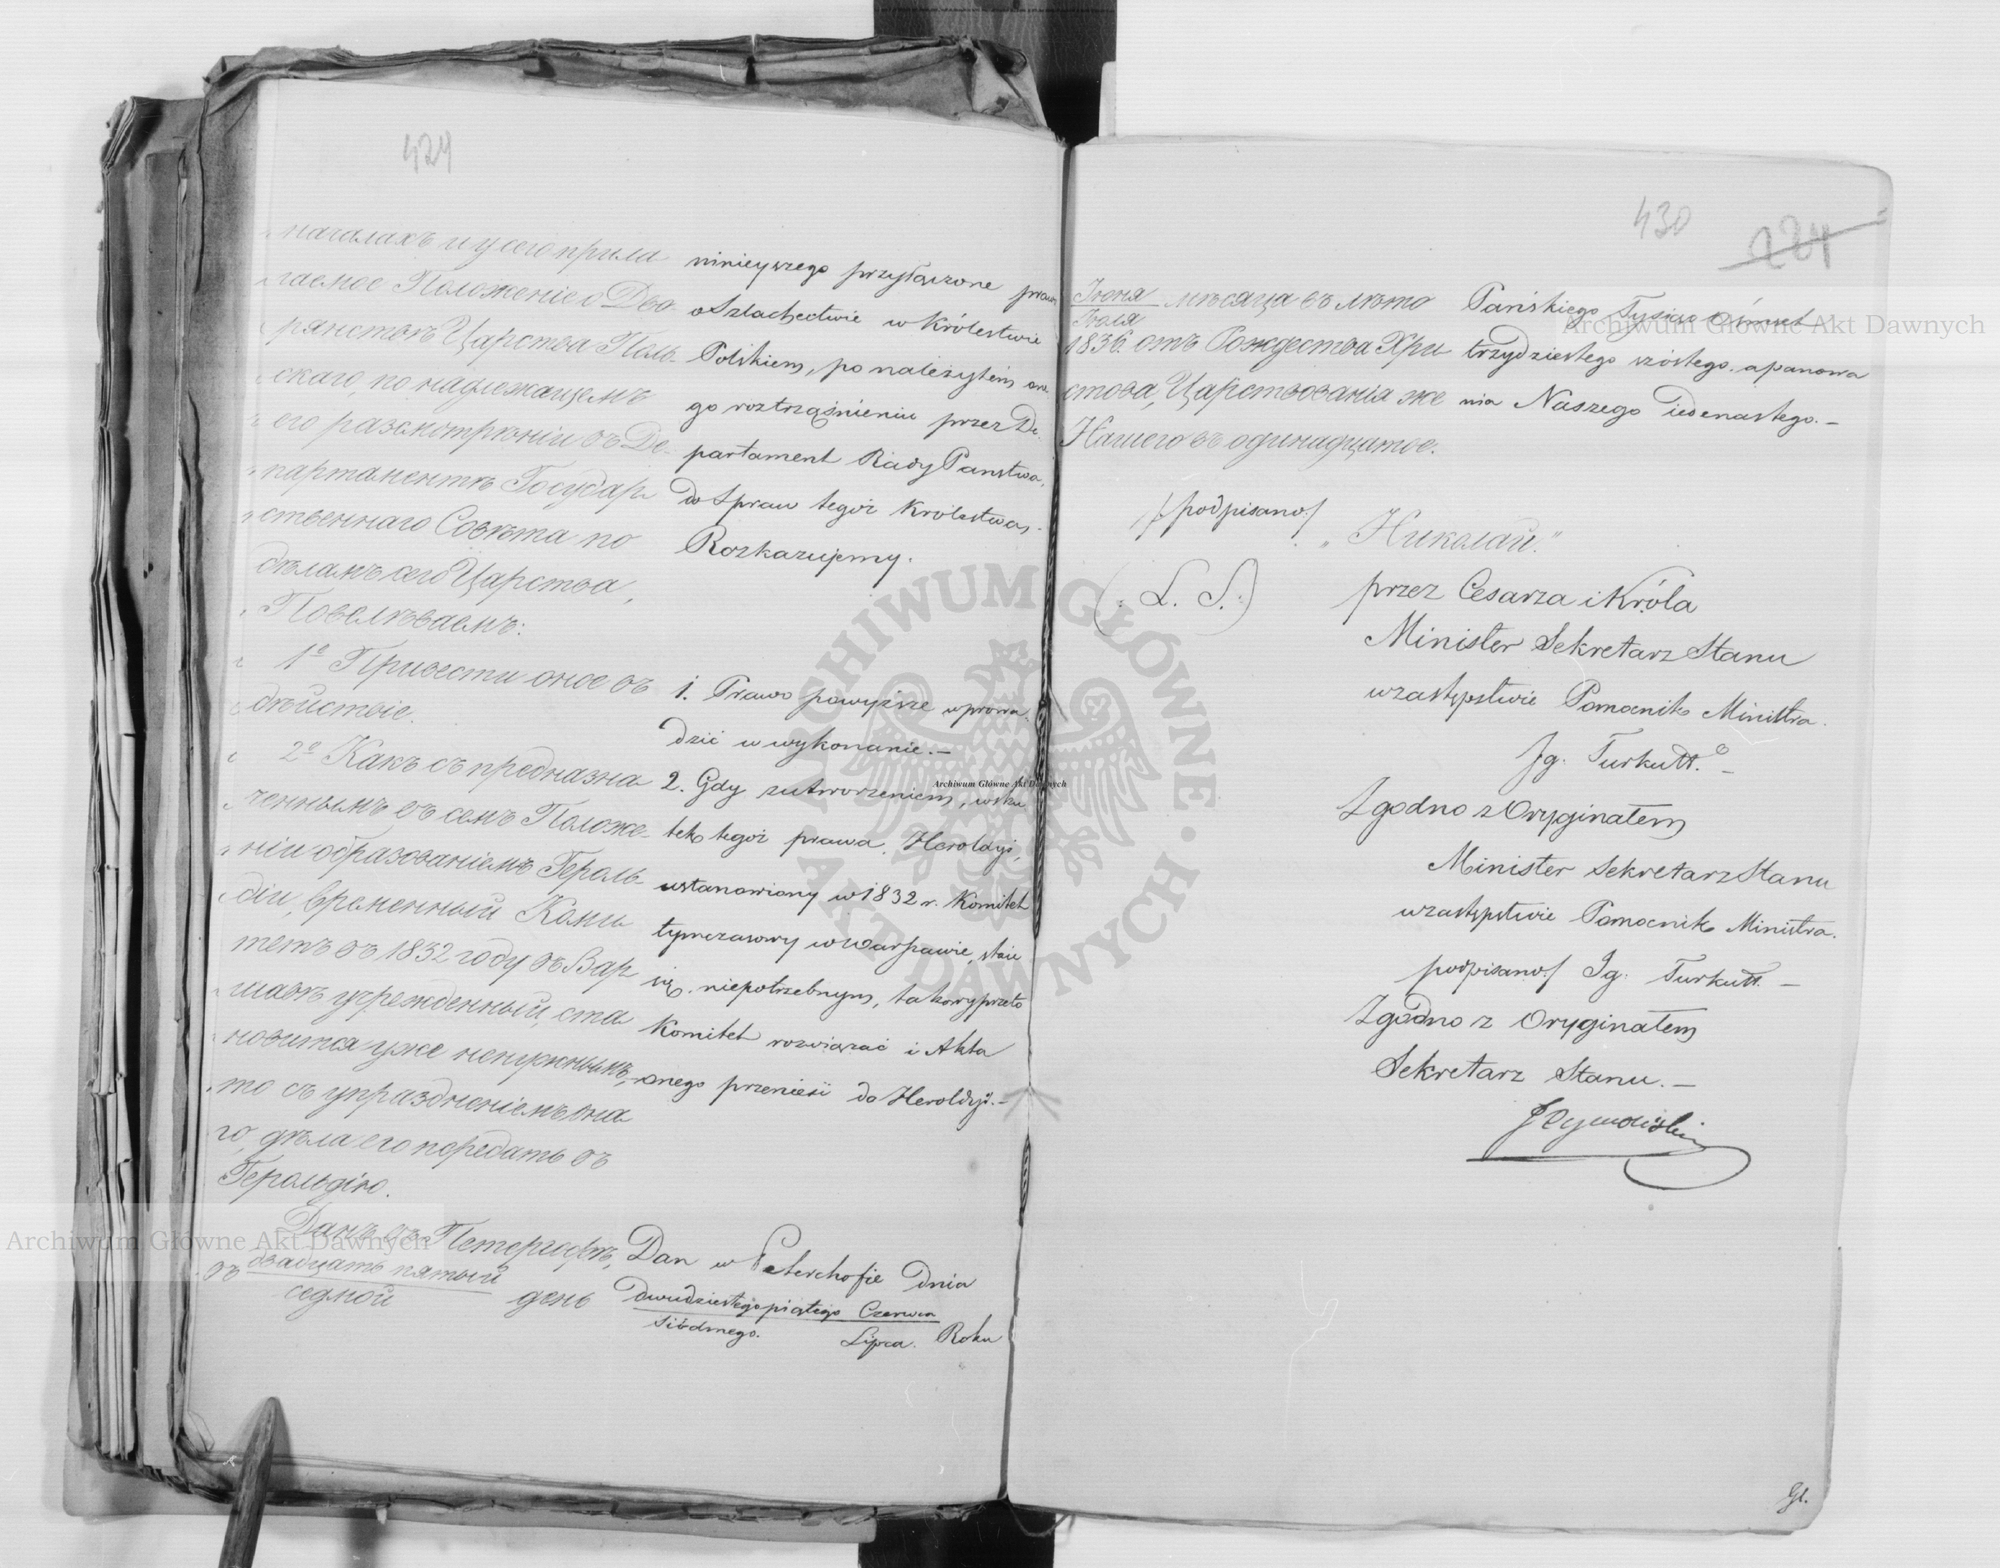 429
началахъ и у сего прила
гаемое Положеніе о Дво-
рянствѣ Царства Поль-
скаго, по надлежащемъ
его разсмотрѣніи въ Де-
партаментѣ Государ
ственнаго Совѣта по
дѣламъ сего Царства,
Повелѣваемъ:
1º Привести оное въ
дѣйствіе.
2º Какъ съ предназна
ченнымъ въ семъ Положе-
ніи образованіемъ Героль-
діи, временный Коми
тетъ въ 1832 году въ Вар
шавѣ учрежденный, ста
новится уже ненужнымъ,
то съ упраздненіемъ она
го, дѣла его передать въ
Герольдію.
Данъ въ Петергофѣ,
въ двадцать пятый
седмой день
niniejszego przyłączone prawo
o Szlachectwie w Królestwie
Polskiem, po należytem one
go roztrząśnieniu przez De-
partament Rady Państwa,
do Spraw tegoż Królestwa,
Rozkazujemy.
1. Prawo powyższe wprowa-
dzić w wykonanie.—
2. Gdy z utworzeniem, wsku
tek tegoż prawa, Heroldyi,
ustanowiony w 1832 r. Komitet
tymczasowy w Warszawie, staie
się niepotrzebnym, takowy przeto
Komitet rozwiązać i Akta
onego przenieść do Heroldyi.—
Dan w Peterhofie Dnia
dwudziestego piątego Czerwca
siódmego. Lipca. Roku
430
224
Іюня
Іюля мѣсяца въ лѣто
1836. отъ Рождества Хри
стова, Царствованія же
Нашего въ одинадцатое.
Pańskiego Tysiąc ośmset
trzydziestego szóstego. a panowa
nia Naszego jedenastego.—
/podpisano/ „Николай.“
(: L. S. :)
przez Cesarza i Króla
Minister Sekretarz Stanu
w zastępstwie Pomocnik Ministra.
Ig. Turkułł.—
Zgodno z Oryginałem
Minister Sekretarz Stanu
w zastępstwie Pomocnik Ministra.
podpisano/ Ig. Turkułł.—
Zgodno z Oryginałem
Sekretarz Stanu.—
Archiwum Główne Akt Dawnych
Archiwum Główne Akt Dawnych
Archiwum Główne Akt Dawnych
ARCHIWUM GŁÓWNE
AKT DAWNYCH